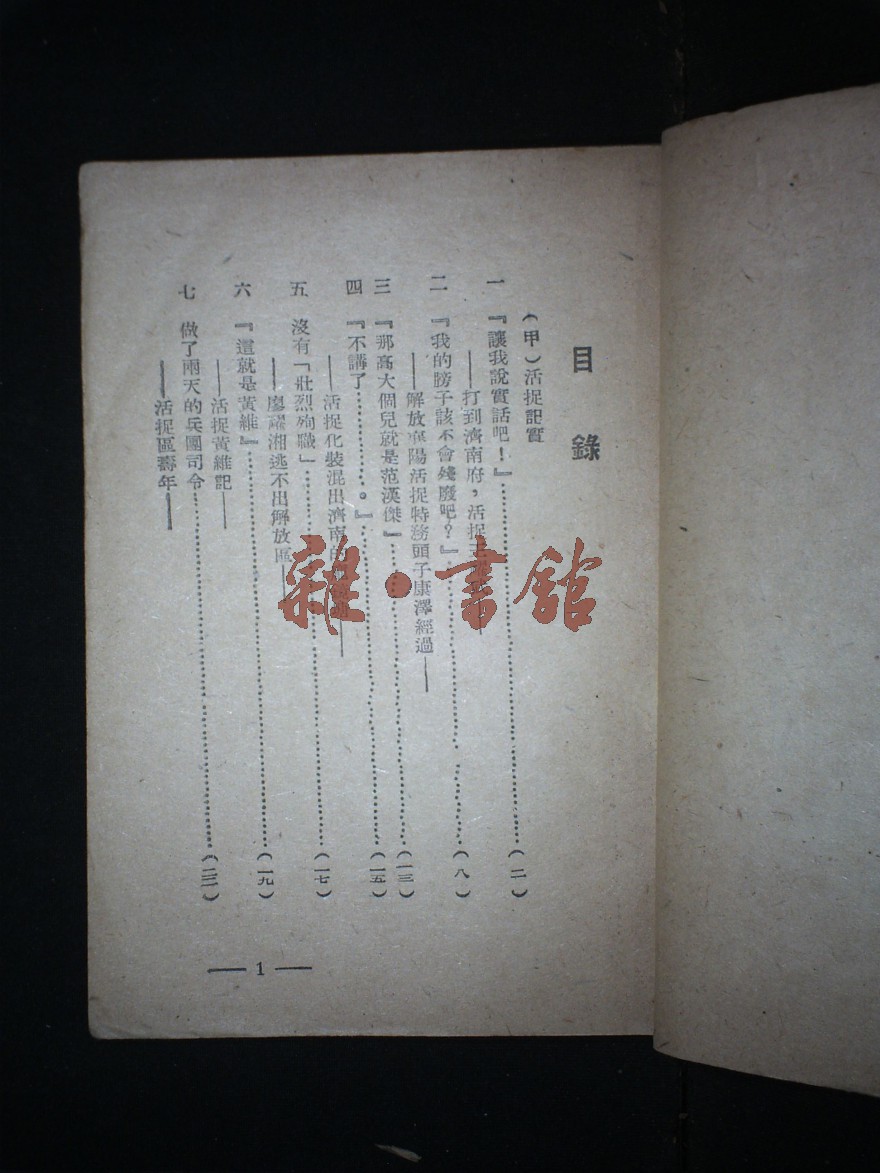 目錄
（甲）活捉記實
一 『讓我說實話吧！』……（二）
——打到濟南府，活捉王——
二 『我的膀子該不會殘廢吧？』……（八）
——解放襄陽活捉特務頭子康澤經過——
三 『那高大個兒就是范漢傑』……（一三）
四 『不講了……。』……（一五）
——活捉化裝混出濟南的——
五 沒有「壯烈殉職」……（一七）
——廖耀湘逃不出解放區——
六 『這就是黃維』……（一九）
——活捉黃維記——
七 做了兩天的兵團司令……（二二）
——活捉區壽年——
— 1 —
雜·書館